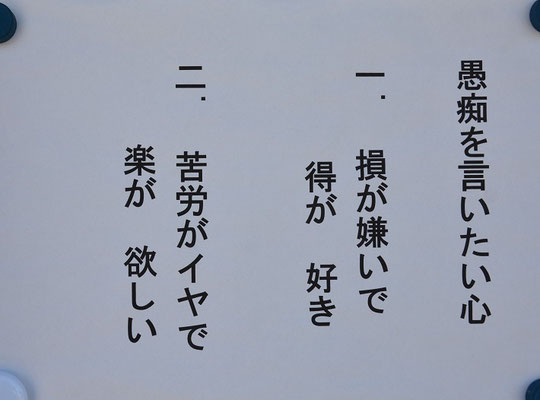 愚痴を言いたい心
一． 損が嫌いで
得が 好き
二． 苦労がイヤで
楽が 欲しい